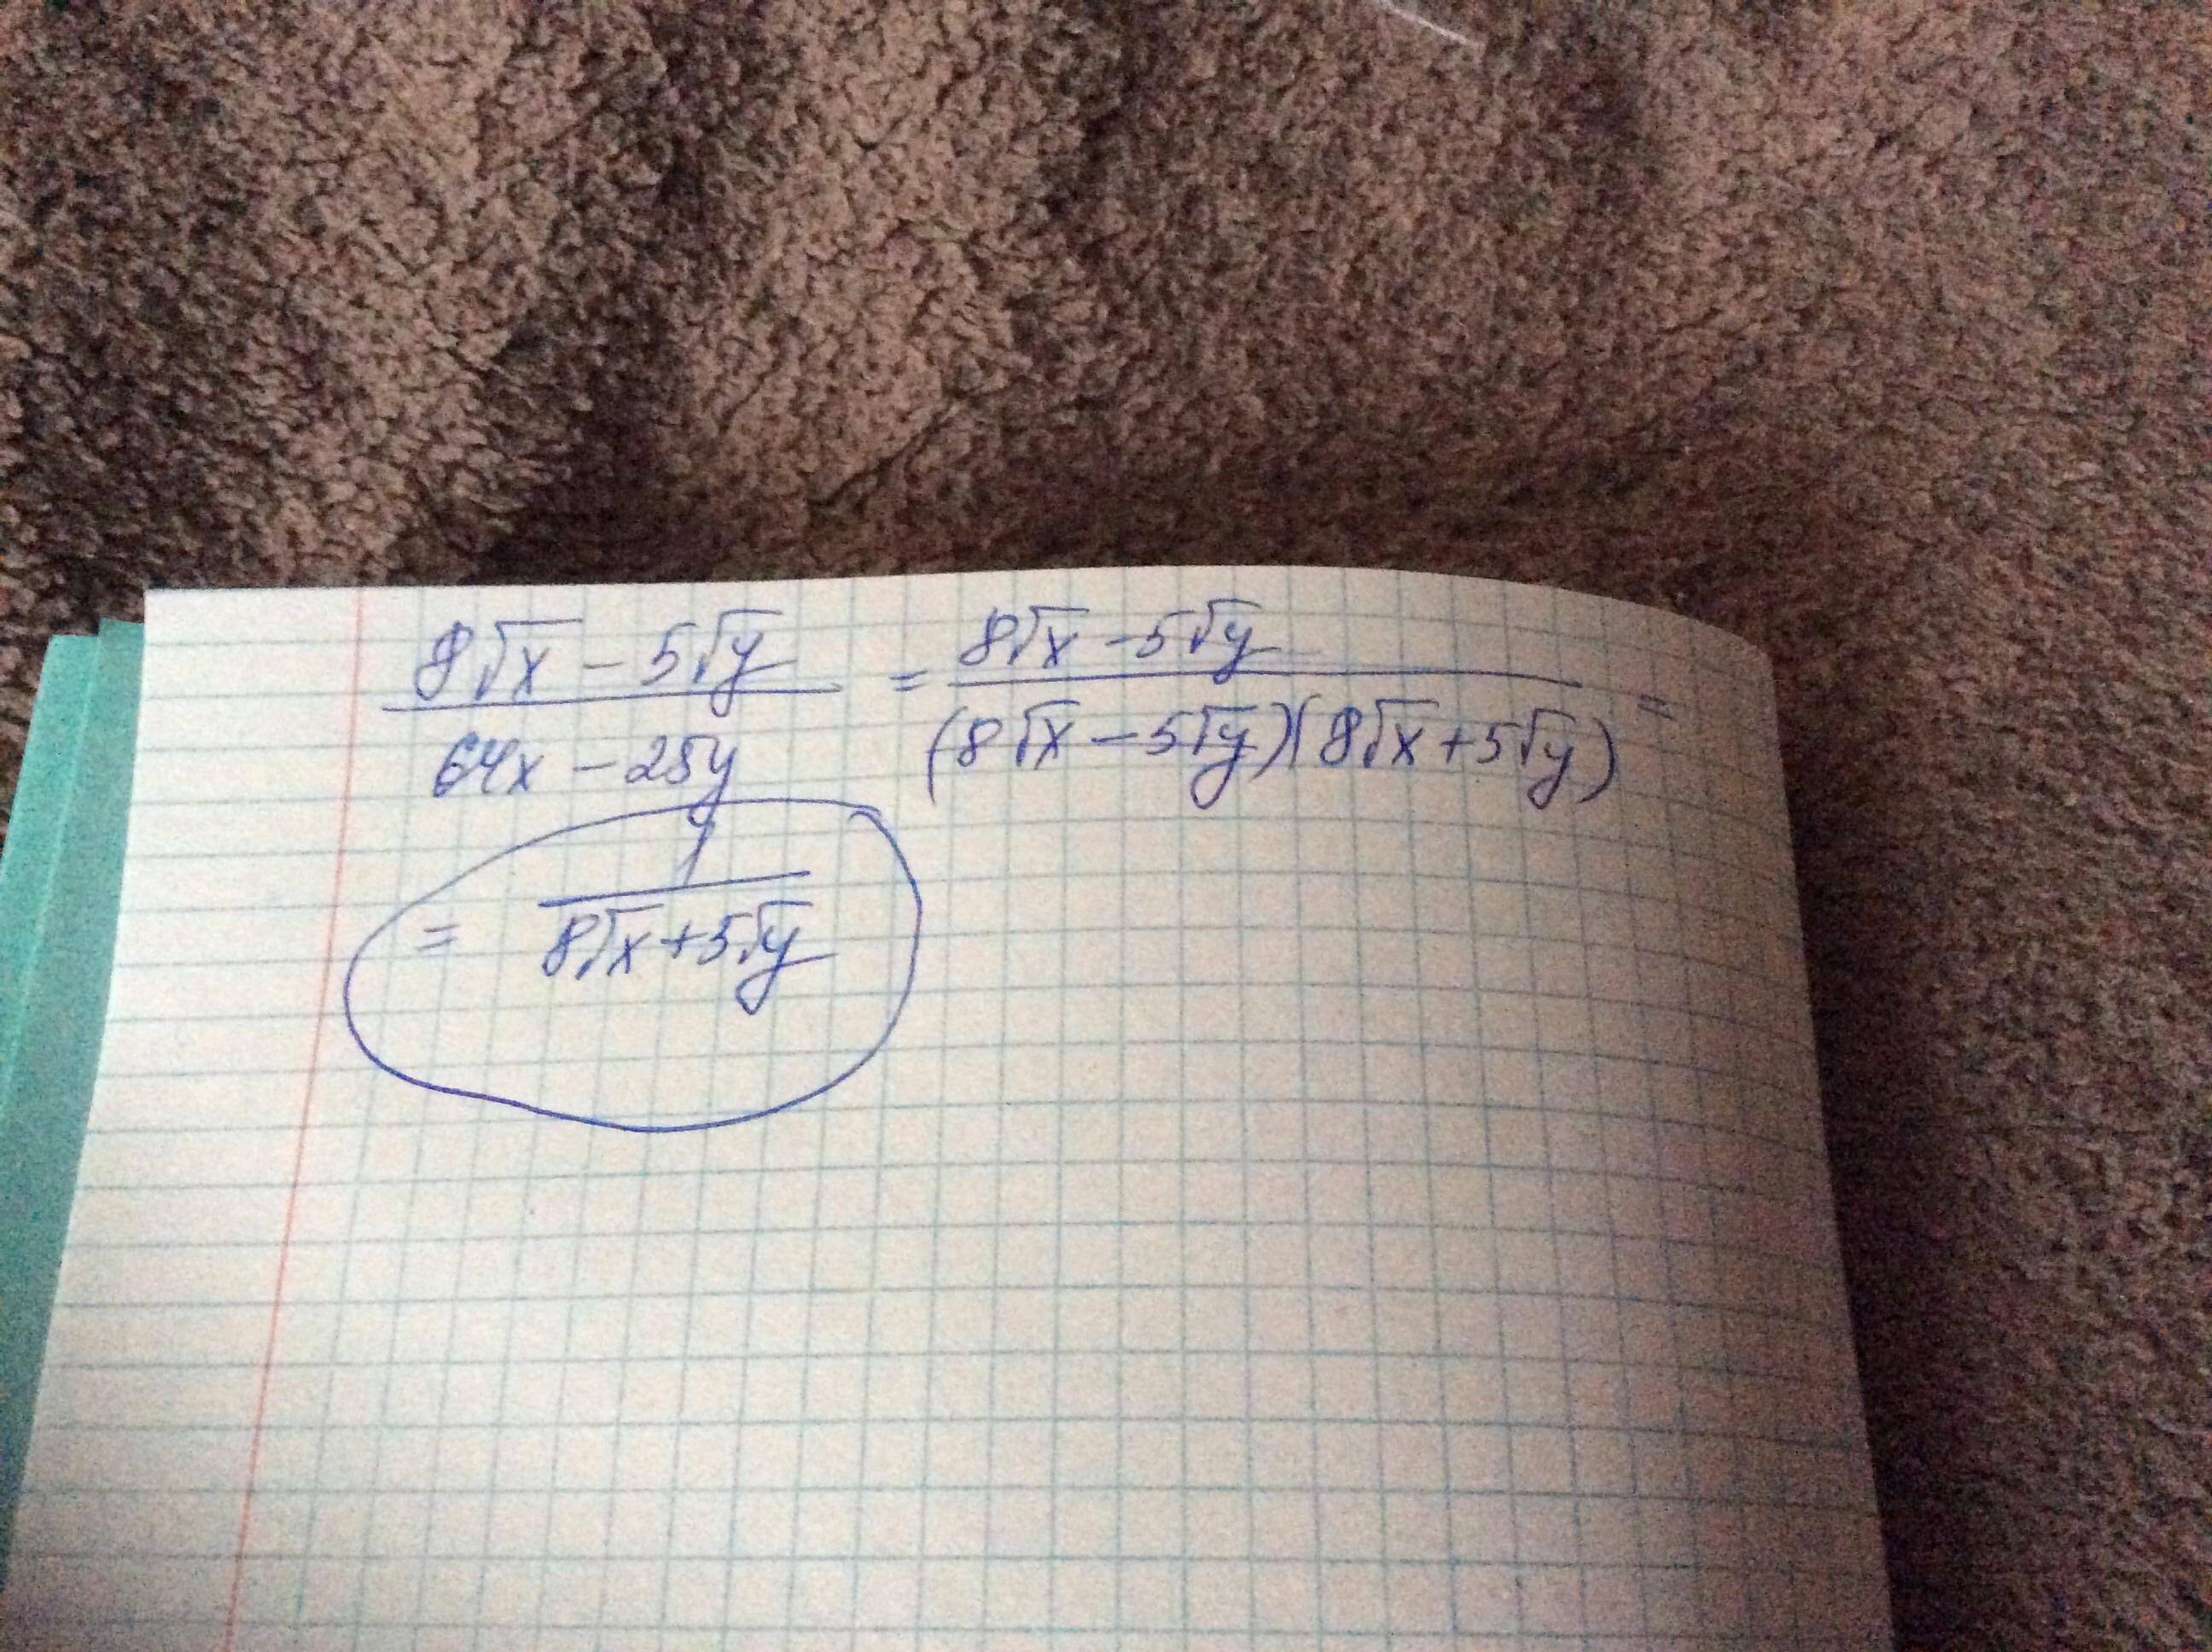 (8√x − 5√y)/(64x − 25y) = (8√x − 5√y)/((8√x − 5√y)(8√x + 5√y)) =
= 1/(8√x + 5√y)